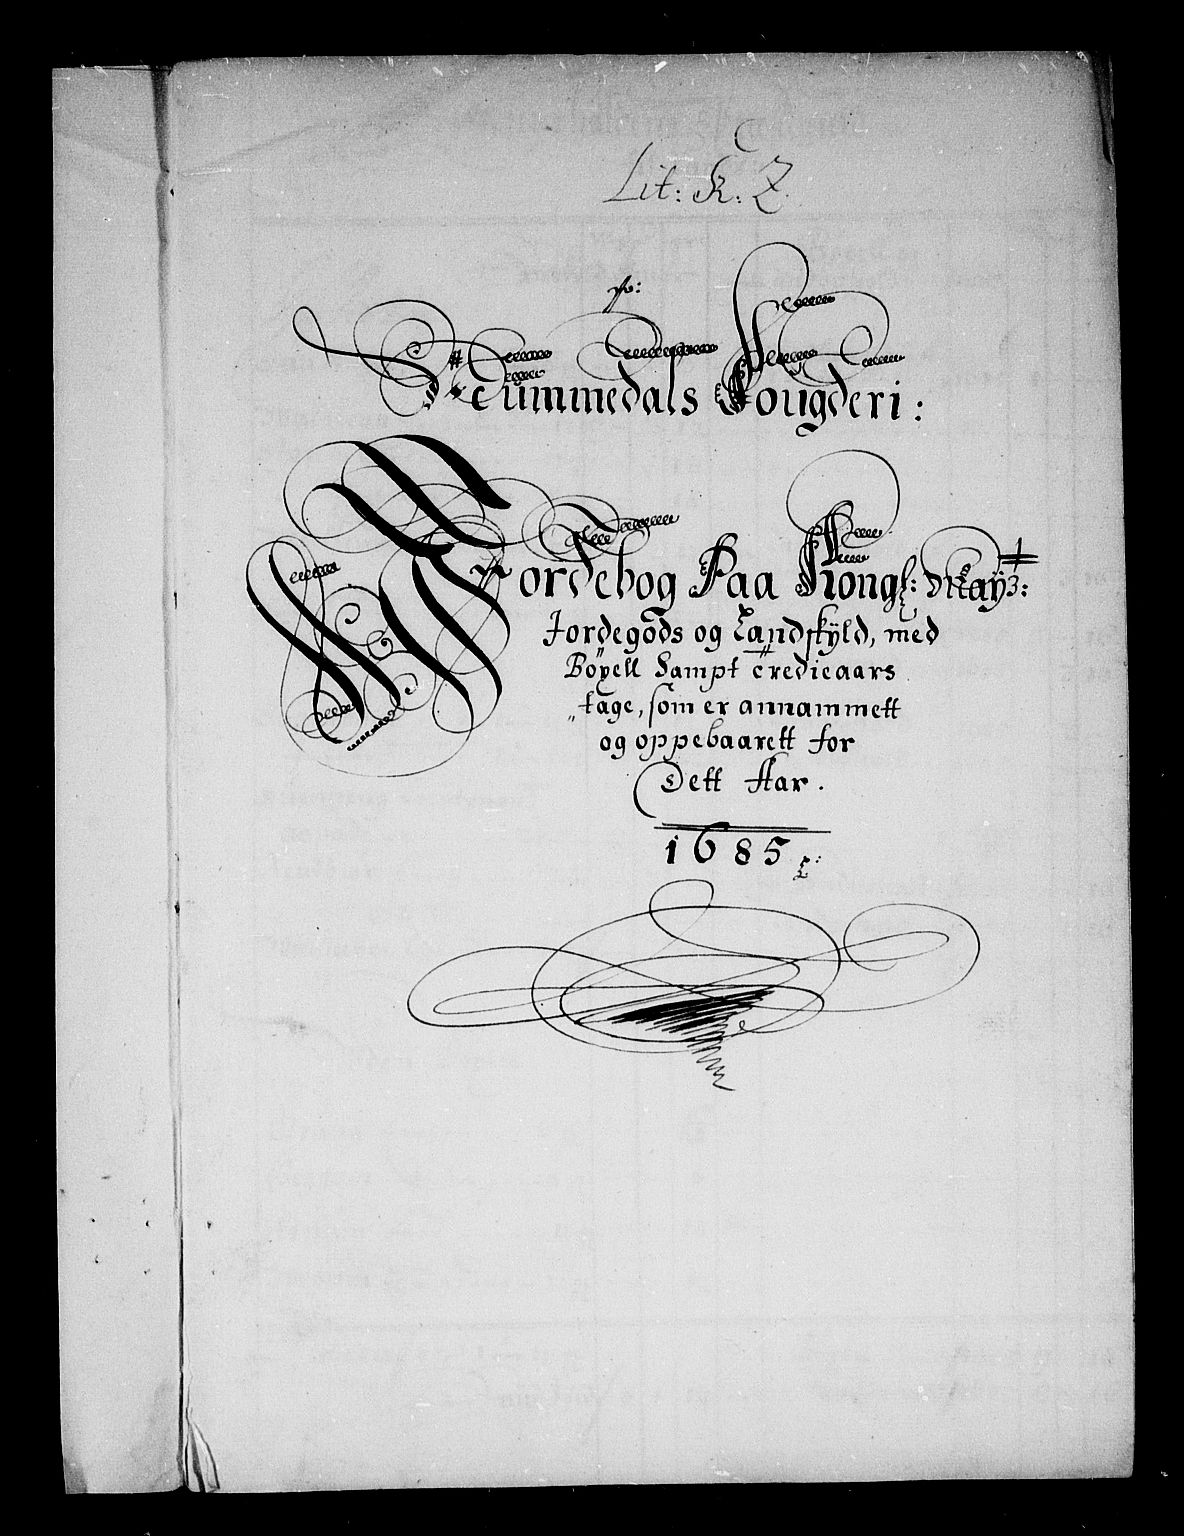 Lit: K: Z.
Nummedals Fougderi:
Jordebog Paa Kongl: Mayz:
Jordegods og Landskyld, med
Böyell Sampt tredieaars
tage, som er annammett
og oppebaarett for
Dett Aar.
1685